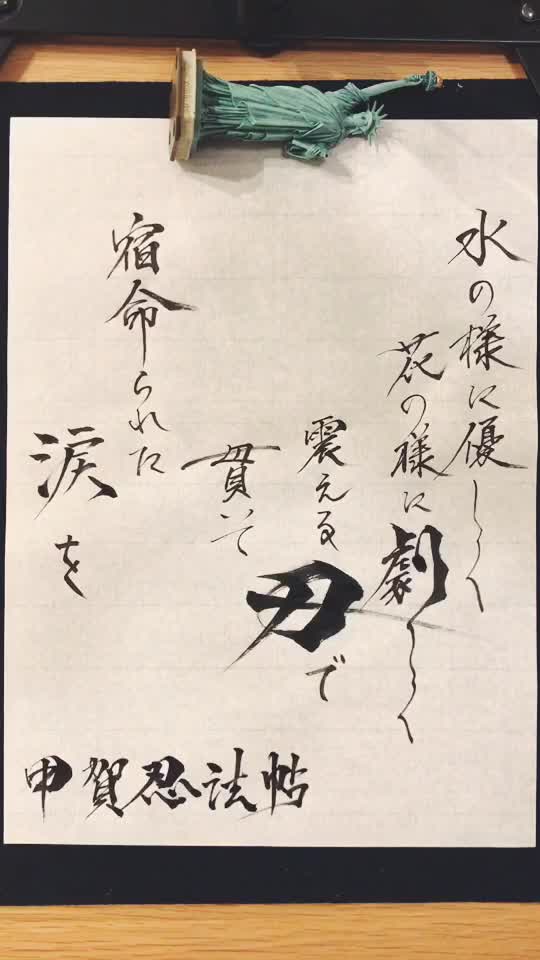 水の様に優しく
花の様に劇しく
震える刃で
貫いて
宿命られた
涙を
甲賀忍法帖